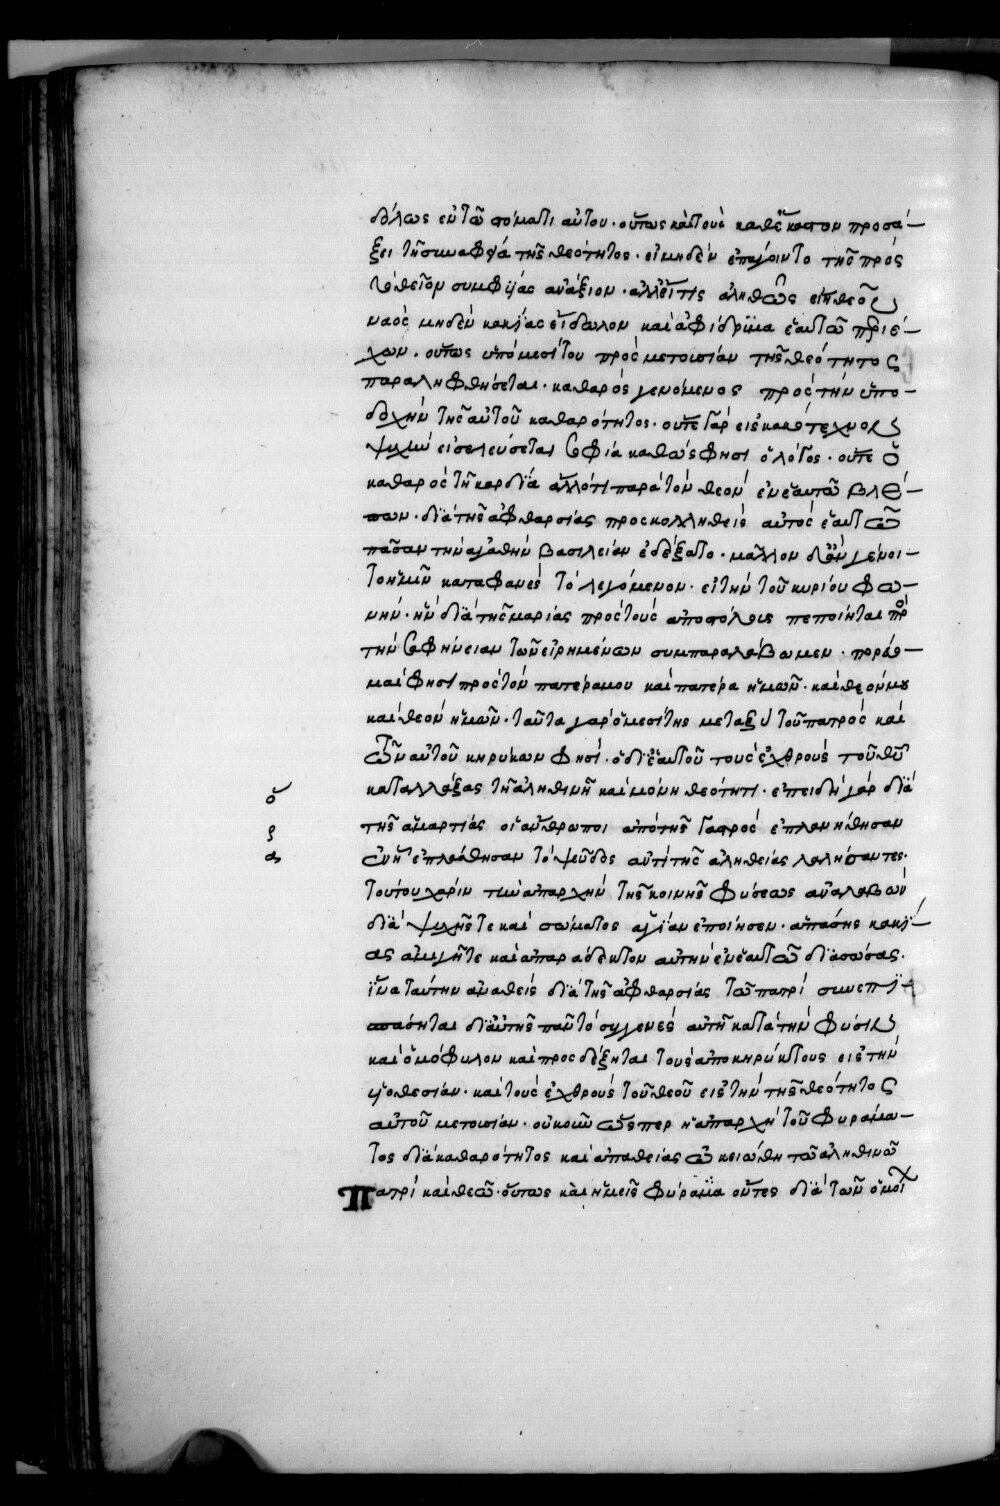 δόλος ἐν τῶ στόματι αὐτοῦ· οὕτως καὶ τοὺς καθ' ἕκαστον προσά-
ξει τῆ συναφεία τῆς θεότητος· εἰ μηδὲν ἐπάγοιντο τῆς πρὸς
τὸ θεῖον συμφυΐας ἀνάξιον· ἀλλ' εἴ τις ἀληθῶς εἴη θεοῦ
ναὸς μηδὲν κακίας εἴδωλον καὶ ἀφίδρυμα ἐν ἑαυτῶ περιέ-
χων· οὗτος ὑπὸ μεσίτου πρὸς μετουσίαν τῆς θεότητος
παραληφθήσεται· καθαρὸς γενόμενος πρὸς τὴν ὑπο-
δοχὴν τῆς αὐτοῦ καθαρότητος· οὔτε γὰρ εἰς κακότεχνον
ψυχὴν εἰσελεύσεται σοφία καθώς φησι ὁ λόγος· οὔτε ὁ
καθαρὸς τῆ καρδία ἄλλό τι παρὰ τὸν θεὸν ἐν ἑαυτῶ βλέ-
πων· διὰ τῆς ἀφθαρσίας προσκολληθεὶς αὐτὸς ἑαυτῶ
πᾶσαν τὴν ἀγαθὴν βασιλείαν ἐδέξατο· μᾶλλον δ' ἂν γένοι-
το ἡμῖν καταφανὲς τὸ λεγόμενον· εἰ τὴν τοῦ κυρίου φω-
νήν· ἣν διὰ τῆς μαρίας πρὸς τοὺς ἀποστόλους πεποίηται πρὸς
τὴν σαφήνειαν τῶν εἰρημένων συμπαραλάβωμεν· πορεύο-
μαί φησι πρὸς τὸν πατέρα μου καὶ πατέρα ἡμῶν· καὶ θεόν μου
καὶ θεὸν ἡμῶν· ταῦτα γὰρ ὁ μεσίτης μεταξὺ τοῦ πατρὸς καὶ
τῶν αὐτοῦ κηρύκων φησί· ὁ δι' ἑαυτοῦ τοὺς ἐχθροὺς τοῦ θεοῦ
καταλλάξας τῆ ἀληθινῆ καὶ μόνη θεότητι· ἐπειδὴ γὰρ διὰ
τῆς ἁμαρτίας οἱ ἄνθρωποι ἀπὸ τῆς γαστρὸς ἐπλανήθησαν
τοῦτου χάριν τὴν ἀπαρχὴν τῆς κοινῆς φύσεως ἀναλαβὼν
διὰ ψυχῆς τε καὶ σώματος ἁγίαν ἐποίησεν· ἁπάσης κακί-
ας ἀμιγῆ τε καὶ ἀπαράδεκτον αὐτὴν ἐν ἑαυτῶ διασώσας·
ἵνα ταύτην ἀναθεὶς διὰ τῆς ἀφθαρσίας τῶ πατρὶ συνεπι-
σπάσηται δι' αὐτῆς πᾶν τὸ συγγενὲς αὐτῆ κατὰ τὴν φύσιν
καὶ ὁμόφυλον καὶ προσδέξηται τοὺς ἀποκηρύκτους εἰς τὴν
υἱοθεσίαν· καὶ τοὺς ἐχθροὺς τοῦ θεοῦ εἰς τὴν τῆς θεότητος
αὐτοῦ μετουσίαν· οὐκοῦν ὥσπερ ἡ ἀπαρχὴ τοῦ φυράμα-
τος διὰ καθαρότητος καὶ ἀπαθείας ὠκειώθη τῶ ἀληθινῶ
Πατρὶ καὶ θεῶ· οὕτως καὶ ἡμεῖς φύραμα ὄντες διὰ τῶν ὁμοί